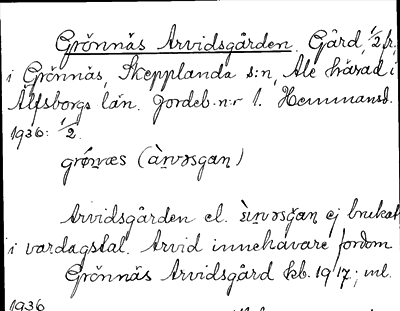 Grönnäs Arvidsgården. Gård, 1/2 fr.
i Grönnäs, Skepplanda s:n, Ale härad i
Älfsborgs län. Jordeb. n:r 1. Hemmansd.
1936: 1/2.
(
Arvidsgården el. ej brukat
i vardagstal. Arvid innehavare fordom
Grönnäs Arvidsgård kb. 1917; ml.
1936